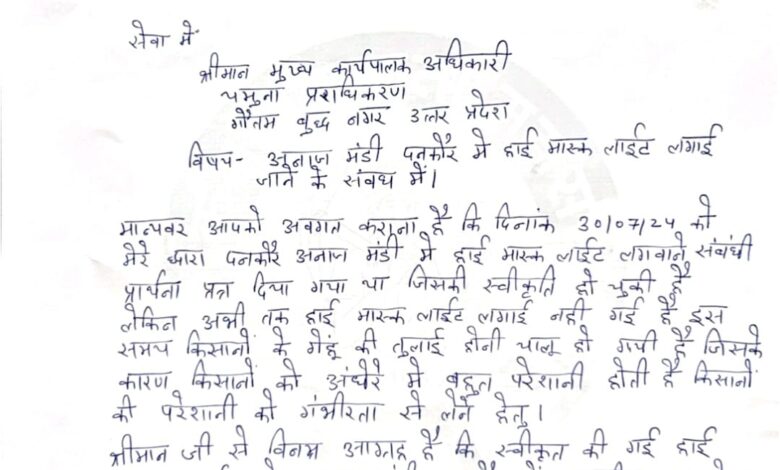 सेवा में
श्रीमान मुख्य कार्यपालक अधिकारी
यमुना प्राधिकरण
गौतम बुद्ध नगर उत्तर प्रदेश
विषय- अनाज मंडी दनकौर मे हाई मास्क लाईट लगाई
जाने के संबध में।
मान्यवर आपको अवगत कराना है कि दिनांक 30/07/24 को
मेरे द्वारा दनकौर अनाज मंडी मे हाई मास्क लाईट लगवाने संबंधी
प्रार्थना पत्र दिया गया था जिसकी स्वीकृति हो चुकी है
लेकिन अभी तक हाई मास्क लाईट लगाई नही गई है इस
समय किसानों के गेंहू की तुलाई होनी चालू हो गयी है जिसके
कारण किसानों को अंधेरे मे बहुत परेशानी होती है किसानों
की परेशानी को गंभीरता से लेने हेतु।
श्रीमान जी से विनम्र आग्रह है कि स्वीकृत की गई हाई